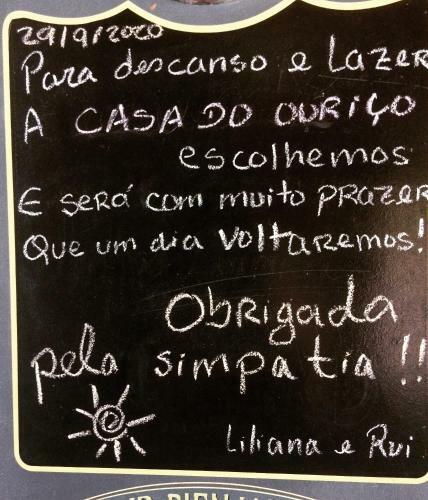 29/9/2020
Para descanso e Lazer
A CASA DO OURIÇO
escolhemos
E será com muito PRAZER
Que um dia Voltaremos!
Obrigada
pela simpatia !!
Liliana e Rui